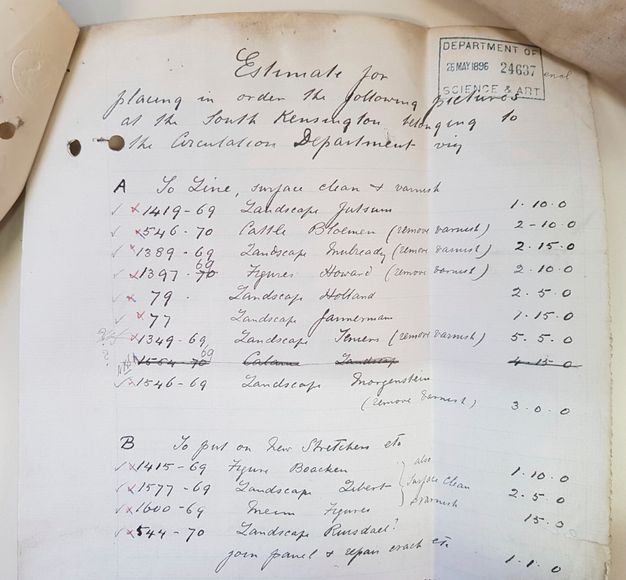 DEPARTMENT OF
26 MAY 1896 24637
SCIENCE & ART
Estimate for
placing in order the following pictures
at the South Kensington belonging to
the Circulation Department viz
A To Line, surface clean + varnish
1419-69 Landscape Jutsum 1-10-0
546-70 Cattle Bloemen (remove varnish) 2-10-0
1389-69 Landscape Mulready (remove varnish) 2.15.0
69
1397-70 Figures Howard (remove varnish) 2.10.0
79. Landscape Holland 2.5.0
77 Landscape 1.15.0
1349-69 Landscape Teniers (remove varnish) 5.5.0
69
1564-70 Calame Landscap 4.15.0
1546-69 Landscape Morgenstern
(remove varnish) 3.0.0
B To put on New Stretchers etc
also
1415-69 Figure 1.10.0
1577-69 Landscape surface clean 2.5.0
1600-69 Figures + varnish 15.0
544-70 Landscape Ruisdael?
join panel + repair crack etc 1.1.0